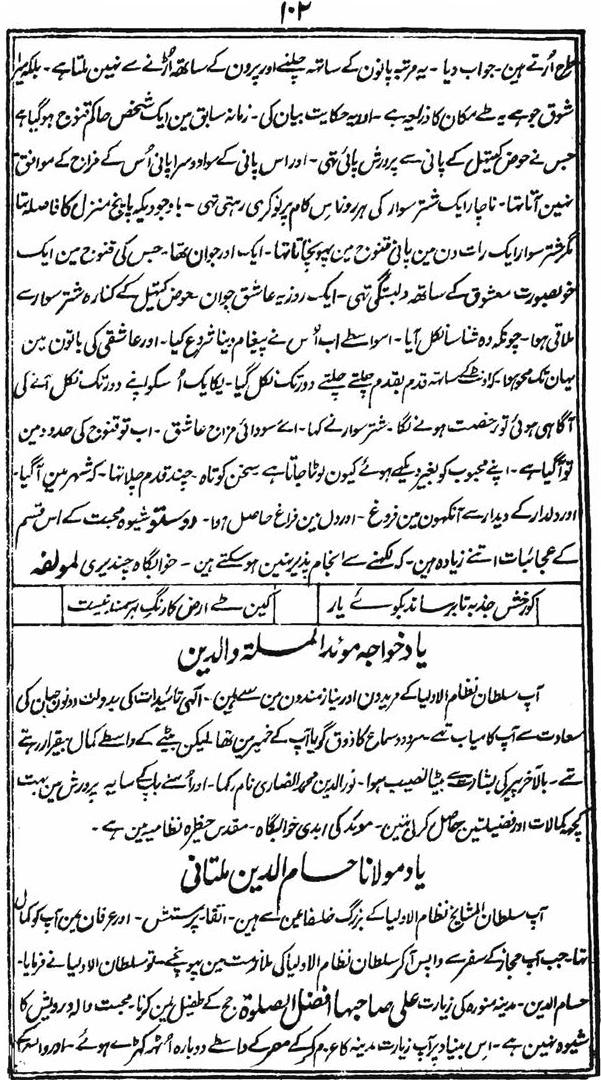 ۱۰۲
طرح اُڑتے ہین۔ جواب دیا۔ یہ مرتبہ پانون کے ساتھ چلنے اور پرون کے ساتھ اُڑنے سے نہین ملتا ہے۔ بلکہ میرا
شوق جو ہے یہ طے مکان کا ذریعہ ہے۔ اور یہ حکایت بیان کی۔ زمانہ سابق مین ایک شخص حاکم قنوج ہو گیا ہے
جس نے حوض کھیتل کے پانی سے پرورش پائی تہی۔ اور اس پانی کے سوا دوسرا پانی اُس کے مزاج کے موافق
نہین آتا تہا۔ ناچار ایک شتر سوار کی ہر روز اس کام پر نوکری رہتی تہی۔ باوجودیکہ پانچ منزل کا فاصلہ تہا
مگر شتر سوار ایک رات دن مین پانی قنوج مین پہونچاتا تہا۔ ایک اور جوان تھا۔ جس کی قنوج مین ایک
خوبصورت معشوق کے ساتھ دلبستگی تہی۔ ایک روز یہ عاشق جوان۔ حوض کھیتل کے کنارہ شتر سوار سے
ملاقی ہوا۔ چونکہ وہ شناسا نکل آیا۔ اسواسطے اب اُس نے پیغام دینا شروع کیا۔ اور عاشقی کی باتون مین
یہان تک محو ہوا۔ کہ اونٹ کے ساتہ قدم بقدم چلتے چلتے دور تک نکل گیا۔ یکایک اُسکو اپنے دور تک نکل آنے کی
آگاہی ہوئی تو رخصت ہونے لگا۔ شتر سوار نے کہا۔ اے سودائی مزاج عاشق۔ اب تو قنوج کی حدود مین
تو آگیا ہے۔ اپنے محبوب کو بغیر دیکہے ہوئے کیون لوٹا جاتا ہے۔ سخن کوتاہ۔ چند قدم چلا تہا۔ کہ شہر مین آ گیا۔
اور دلدار کے دیدار سے آنکہون مین فروغ۔ اور دل مین فراغ حاصل ہوا۔ دوستو شیوہ محبت کے اس قسم
کے عجائبات اتنے زیادہ ہین۔ کہ لکہنے سے انجام پذیر نہین ہو سکتے ہین۔ خوابگاہ چندیری لمولفہ
کو رخش جذبہ تا برساند بکوئے یار
کین طے ارض کار تگِ ہر سمند نیست
یاد خواجہ موئد الملۃ والدین
آپ سلطان نظام الاولیا کے مریدون اور نیازمندون مین سے ہین۔ الٰہی تائیدات کی بدولت دونون جہان کی
سعادت سے آپ کامیاب تہے۔ سرود و سماع کا ذوق گویا آپ کے خمیر مین تھا لیکن بیٹے کے واسطے کمال بیقرار رہتے
تہے۔ بالآخر پیر کی بشارت سے بیٹا نصیب ہوا۔ نور الدین محمد انصاری نام رکہا۔ اور اُسنے باپ کے سایہ پرورش مین بہت
کچھ کمالات اور فضیلتین حاصل کر لی تہین۔ موئد کی ابدی خوابگاہ۔ مقدس حظیرہ نظامیہ مین ہے۔
یاد مولانا حسام الدین ملتانی
آپ سلطان المشایخ نظام الاولیا کے بزرگ خلفا مین سے ہین۔ اتقا۔ پرستش۔ اور عرفان مین آپ کو کمال
تہا۔ جب آپ حجاز کے سفر سے واپس آکر سلطان نظام الاولیا کی ملازمت مین پہونچے۔ تو سلطان الاولیا نے فرمایا۔
حسام الدین۔ مدینہ منورہ کی زیارت علی صاحبہا افضل الصلوۃ حج کے طفیل مین کرنا۔ محبت والہ درویش کا
شیوہ نہین ہے۔ اس بنیاد پر آپ زیارت مدینہ کا عزم کر کے سفر کے واسطے دوبارہ اُٹھ کھڑے ہوئے۔ اور